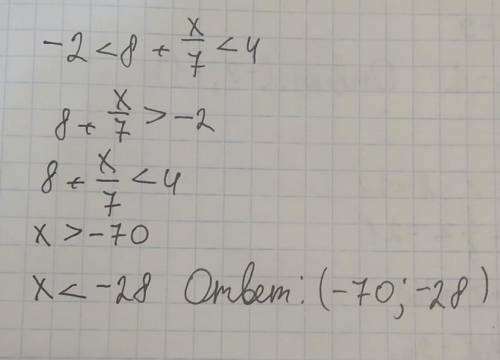 -2 < 8 + x/7 < 4
8 + x/7 > -2
8 + x/7 < 4
x > -70
x < -28 Ответ: (-70; -28)